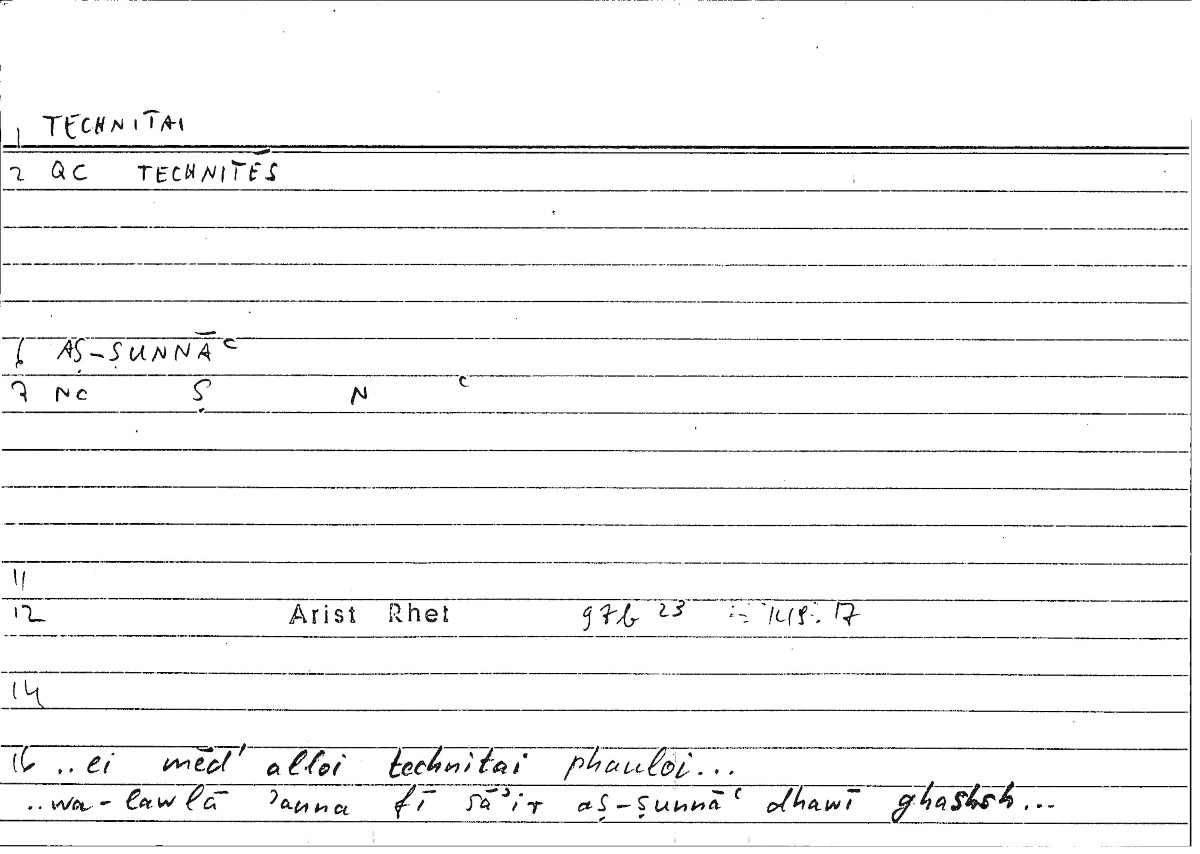 1 TECHNITAI
2 QC TECHNITĒS
6 AṢ-ṢUNNĀʿ
7 NC Ṣ N ʿ
11
12 Arist Rhet 97b 23 = 149. 17
14
16 ..ei mēd' alloi technitai phauloi...
..wa-lawlā ʾanna fī sāʾir aṣ-ṣunnāʿ dhawī ghashsh...